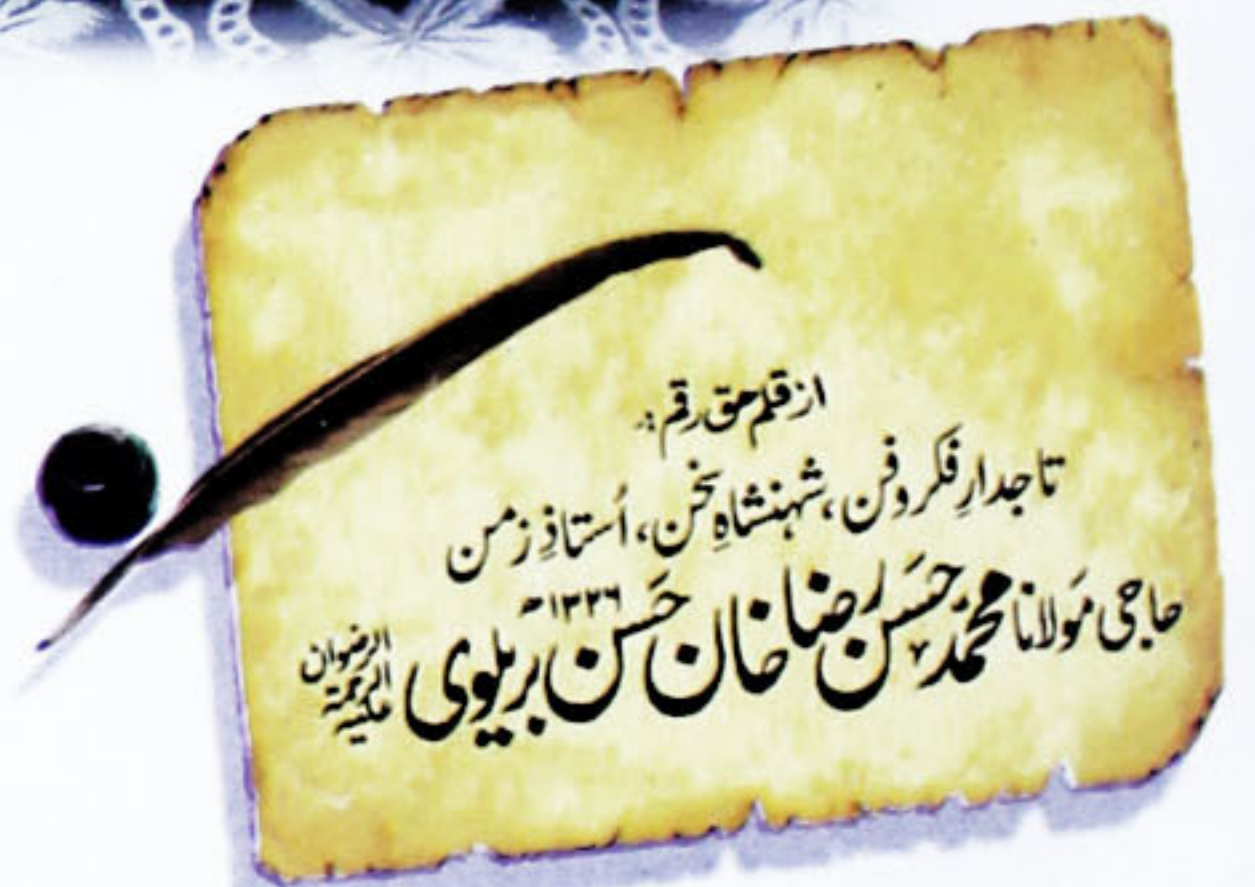 از قلم حق رقم:
تاجدارِ فکر و فن، شہنشاہِ سخن، اُستاذِ زمن
حاجی مَولانا محمّد حَسَن رضا خان حَسن بریلوی علیہ الرحمۃ الرضوان
۱۳۲۶ھ